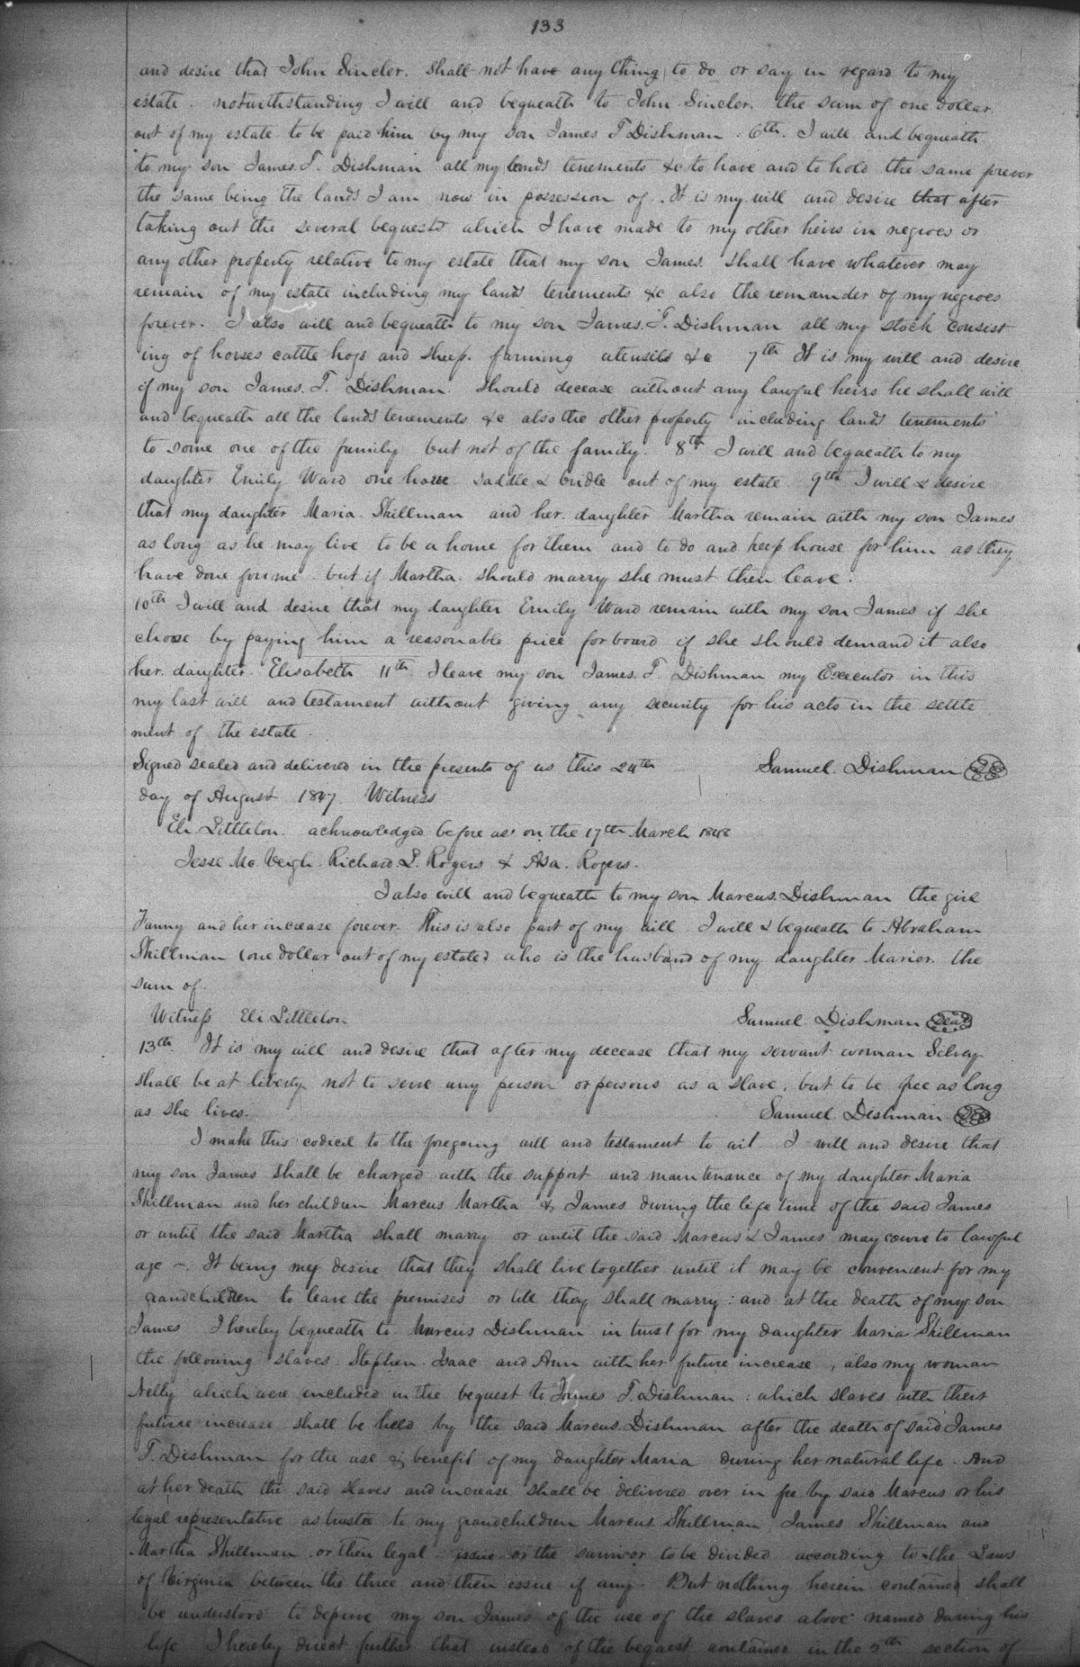 133
and desire that John Sincler. shall not have any thing to do or say in regard to my
estate. notwithstanding I will and bequeath to John Sincler. the sum of one dollar.
out of my estate to be paid him by my son James T Dishman. 6th. I will and bequeath
to my son James. T. Dishman all my lands tenements &c to have and to hold the same forever
the same being the lands I am now in possession of. It is my will and desire that after
taking out the several bequests which I have made to my other heirs in negroes or
any other property relative to my estate that my son James. shall have whatever may
remain of my estate including my lands tenements &c also the remainder of my negroes
forever. I also will and bequeath to my son James. T. Dishman all my stock consist
ing of horses cattle hogs and sheep. farming utensils &c 7th It is my will and desire
if my son James. T. Dishman. should decease without any lawful heirs he shall will
and bequeath all the lands tenements &c also the other property including lands tenements
to some one of the family but not of the family. 8th I will and bequeath to my
daughter Emily Ward one horse saddle & bridle out of my estate. 9th I will & desire
that my daughter Maria. Skillman and her. daughter Martha remain with my son James
as long as he may live to be a home for them and to do and keep house for him as they
have done for me. but if Martha. should marry she must then leave.
10th I will and desire that my daughter Emily Ward remain with my son James if she
choose by paying him a reasonable price for board if she should demand it also
her. daughter. Elisabeth 11th I leave my son James. T. Dishman my Executor in this
my last will and testament without giving any security for his acts in the settle
ment of the estate.
Signed sealed and delivered in the presents of us this 24th Samuel. Dishman
day of August 1847. Witness
Eli Littleton. acknowledged before us on the 17th March 1848
Jesse Mc.Veigh. Richard L. Rogers & Asa. Rogers.
I also will and bequeath to my son Marcus. Dishman the girl
Fanny and her increase forever. This is also part of my will. I will & bequeath to Abraham
Skillman (one dollar out of my estate) who is the husband of my daughter Marier. the
sum of.
Witness Eli Littleton Samuel Dishman Seal
13th It is my will and desire that after my decease that my servant woman Silvey
shall be at liberty not to serve any person or persons as a slave, but to be free as long
as she lives. Samuel Dishman
I make this codicil to the foregoing will and testament to wit I will and desire that
my son James shall be charged with the support and maintenance of my daughter Maria
Skillman and her children Marcus Martha & James during the life time of the said James
or until the said Martha shall marry or until the said Marcus & James may come to lawful
age -. It being my desire that they shall live together until it may be convenient for my
grandchildren to leave the premises or till they shall marry: and at the death of my son
James I hereby bequeath to Marcus Dishman in trust for my daughter Maria Skillman
the following slaves. Stephen. Isaac and Ann with her future increase, also my woman
Nelly which were included in the bequest to James T. Dishman: which slaves with their
future increase shall be held by the said Marcus Dishman after the death of said James
T. Dishman for the use & benefit of my daughter Maria during her natural life. And
at her death the said slaves and increase shall be delivered over in fee by said Marcus or his
legal representative as trustee to my grandchildren Marcus Skillman, James Skillman and
Martha Skillman or their legal issue or the survivor to be divided according to the Laws
of Virginia between the three and their issue if any. But nothing herein contained shall
be understood to deprive my son James of the use of the slaves above named during his
life I hereby direct further that instead of the bequest contained in the section of